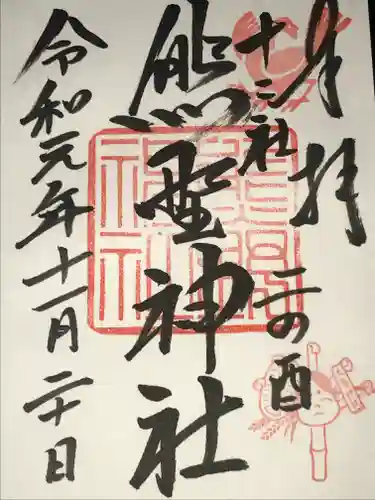 奉拝
十二社
二の酉
熊野神社
令和元年十一月二十日